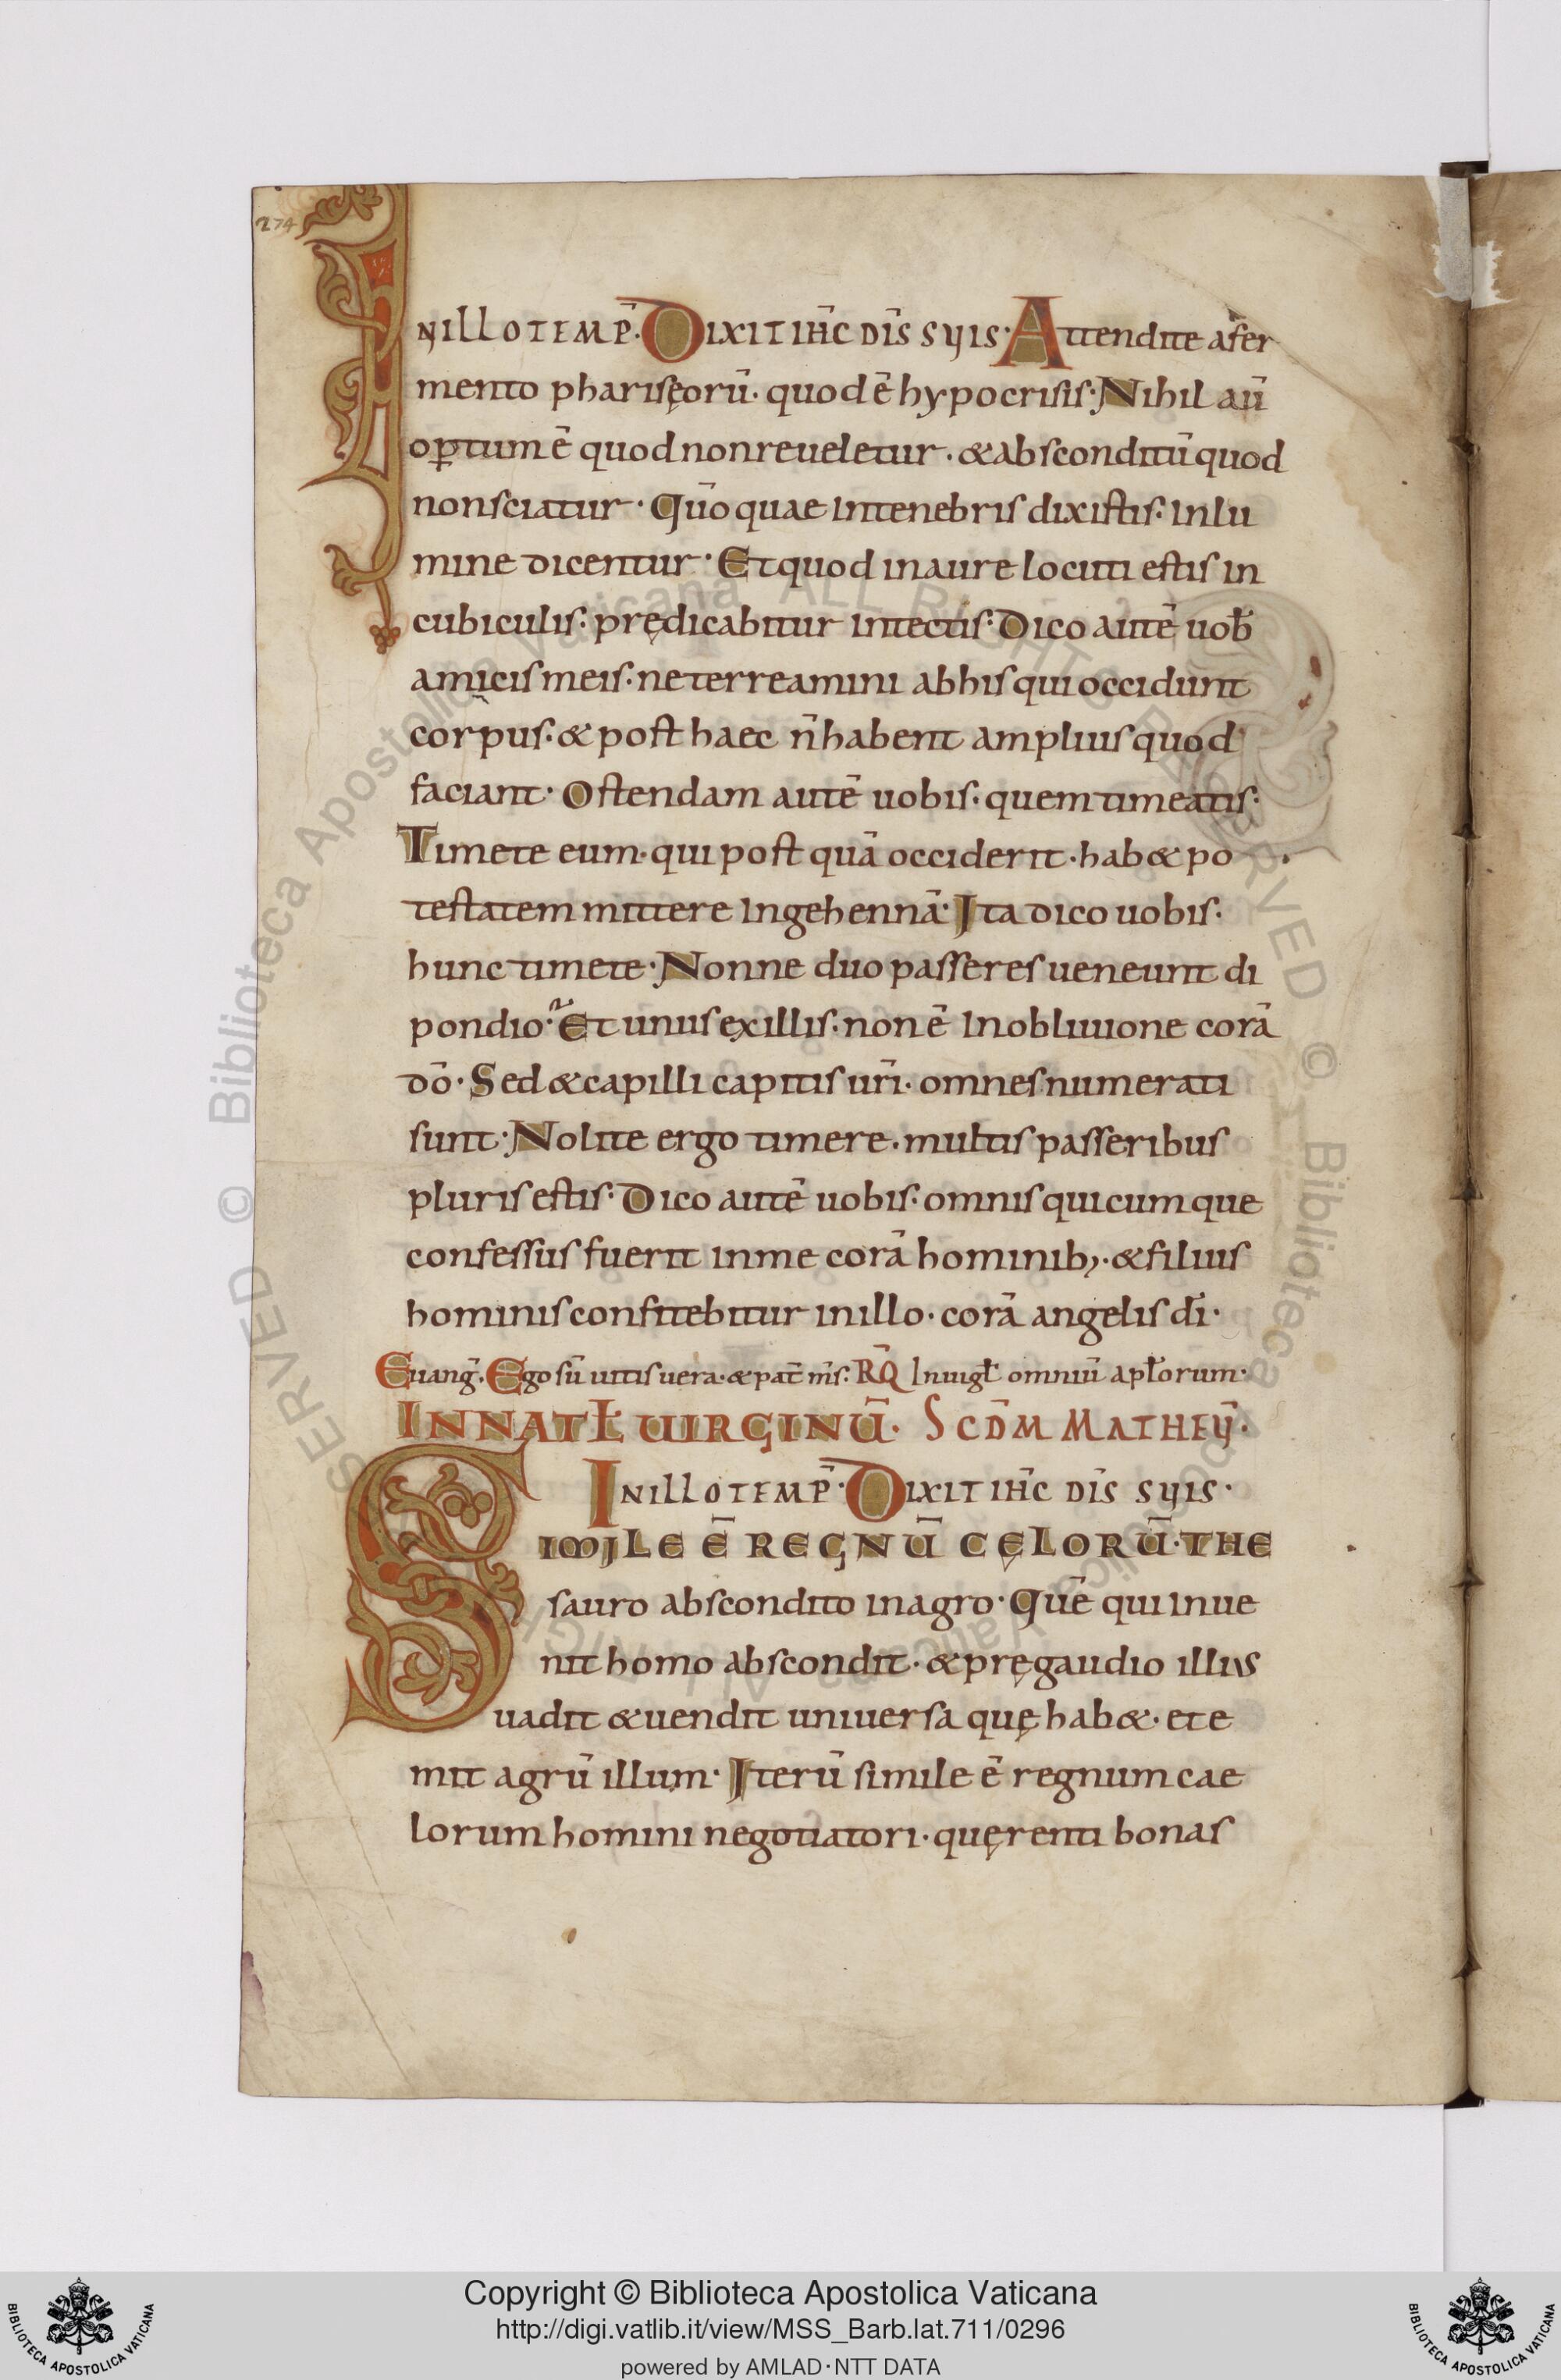 274
INILLOTEMP̄· DIXIT IH̄C DĪS SUIS· Attendite a fer
mento phariseęorū· quod ē hypocrisis· Nihil aū
op̱tum ē quod non reueletur· & absconditū quod
non sciatur· Qūo quae in tenebris dixistis· in lu
mine dicentur· Et quod in aure locuti estis in
cubiculis· prędicabitur in tectis· Dico autē uob̄
amicis meis· ne terreamini ab his qui occidunt
corpus· & post haec n̄ habent amplius quod
faciant· Ostendam autē uobis· quem timeatis·
Timete eum· qui post quā occiderit· hab& po
testatem mittere in gehennā· Ita dico uobis·
hunc timete· Nonne duo passeres ueneunt di
pondio· Et unus ex illis· non ē in obliuione corā
dō· Sed & capilli capitis ur̄i· omnes numerati
sunt· Nolite ergo timere· multis passeribus
pluris estis· Dico autē uobis· omnis quicumque
confessus fuerit in me corā hominib;· & filius
hominis confitebitur in illo· corā angelis dī·
Euang̅· Ego sū uitis uera· & pat̄ m̄s· RQ̄ In uigł omniū apłorum·
IN NATŁ UIRGINŪ· SCD̄M MATHEŪ·
IN ILLO TEMP̄· DIXIT IH̄C DĪS SUIS·
SIMILE Ē REGNŪ CĘLORŪ· THE
sauro abscondito in agro· Quē qui inue
nit homo abscondit· & prę gaudio illius
uadit & uendit uniuersa quę hab&· et e
mit agrū illum· Iterū simile ē regnum cae
lorum homini negotiatori· quęrenti bonas
© Biblioteca Apostolica Vaticana ALL RIGHTS RESERVED © Biblioteca Apostolica Vaticana ALL RIGHTS RESERVED
Copyright © Biblioteca Apostolica Vaticana
http://digi.vatlib.it/view/MSS_Barb.lat.711/0296
powered by AMLAD·NTT DATA
BIBLIOTECA APOSTOLICA VATICANA
BIBLIOTECA APOSTOLICA VATICANA